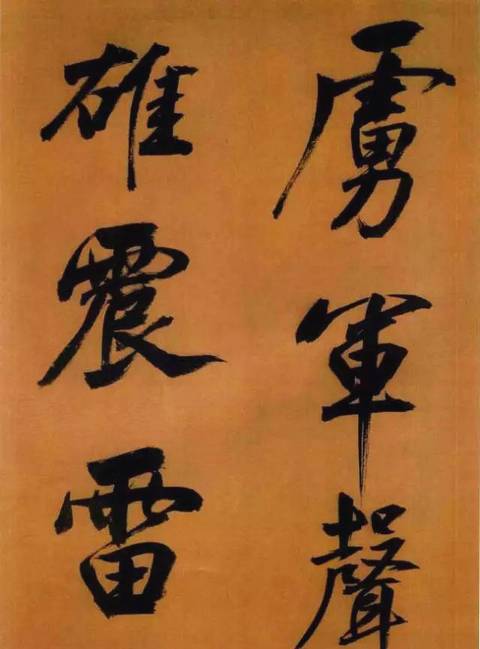 虜軍聲
雄震雷